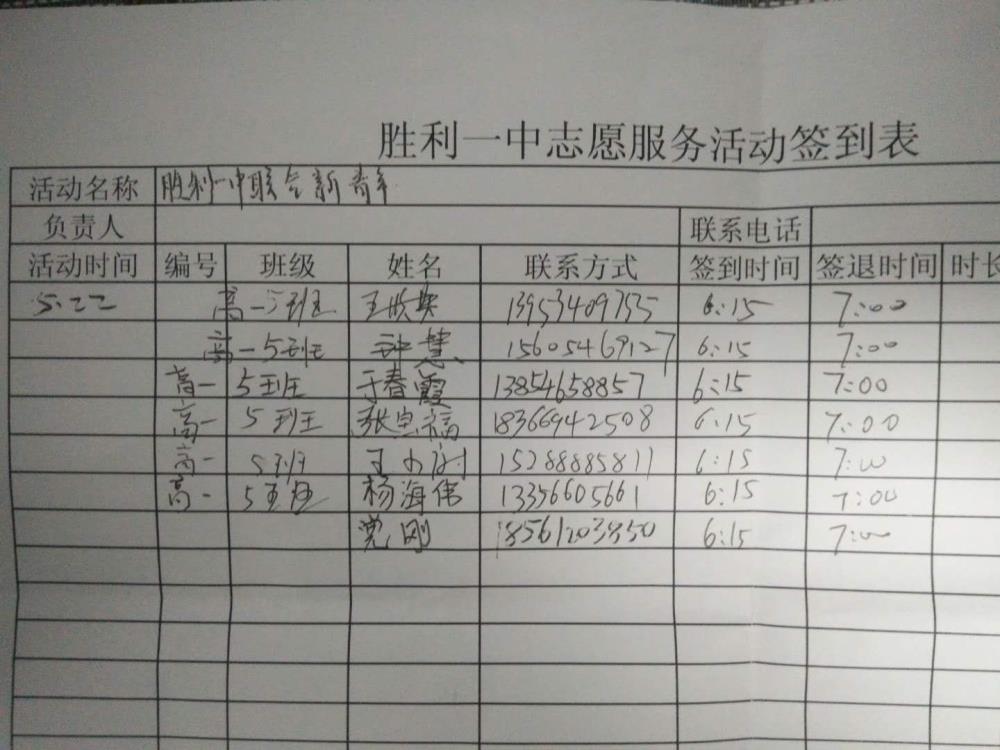 胜利一中志愿服务活动签到表
活动名称 胜利一中联合新青年
负责人 联系电话
活动时间 编号 班级 姓名 联系方式 签到时间 签退时间 时长
5.22 高一5班 王 13953409755 6:15 7:00
高一5班 钟慧 15605469127 6:15 7:00
高一 5班 于春霞 13854658857 6:15 7:00
高一 5班 张 福 18366942508 6:15 7:00
高一 5班 王 15288885811 6:15 7:00
高一 5班 杨海伟 13356605661 6:15 7:00
党刚 18561203850 6:15 7:00